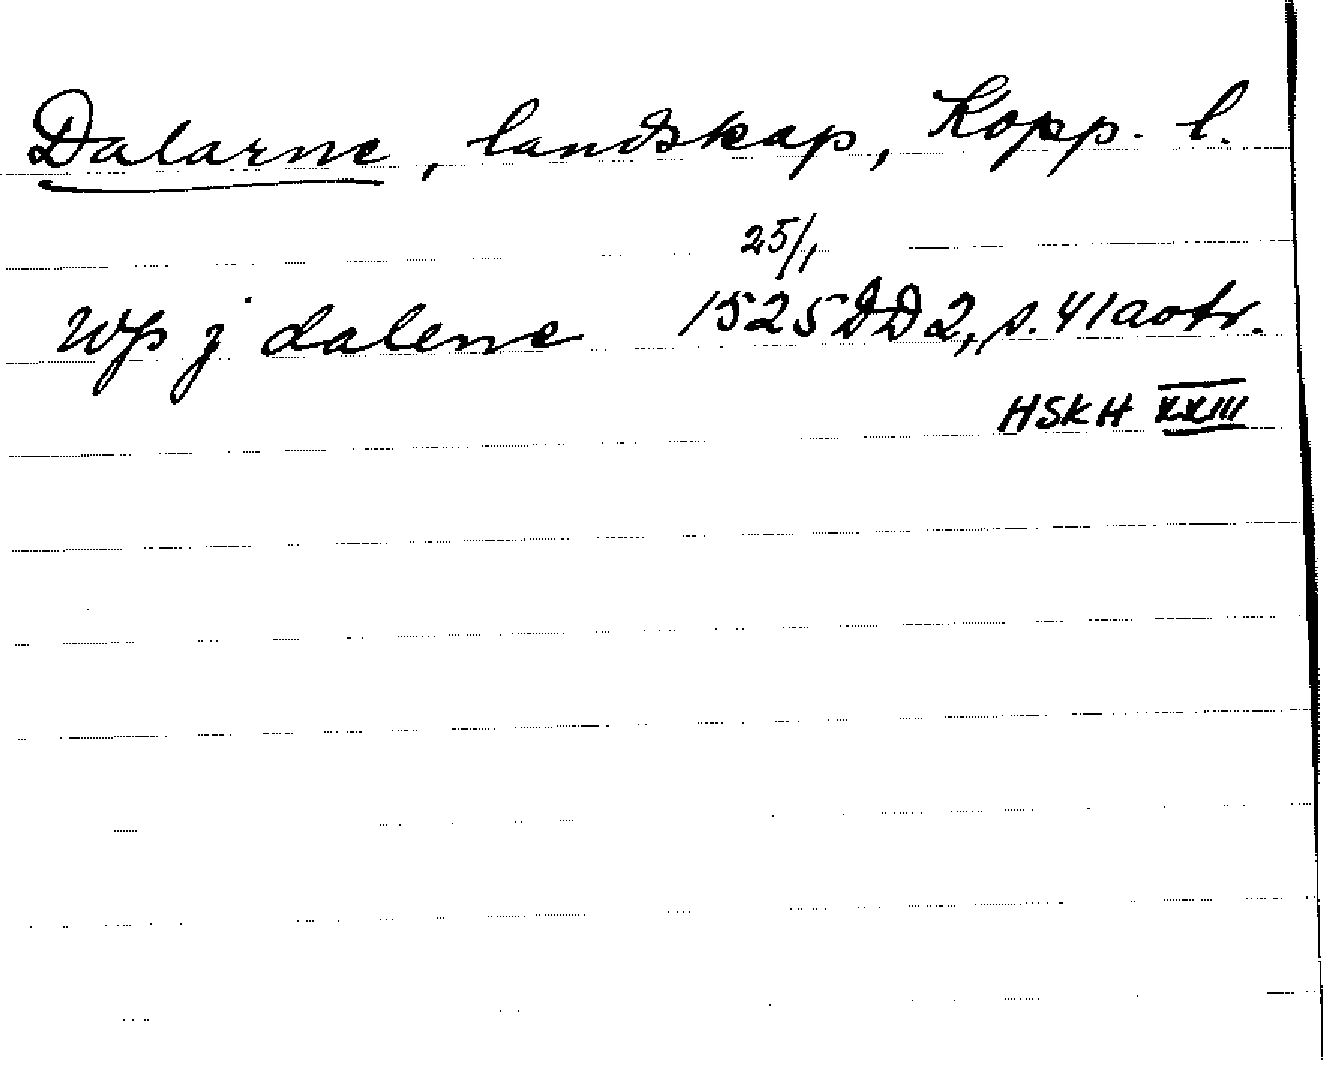 Dalarne, landskap, Kopp. l.
25/1
Wp j dalene 1525 DD2, s. 41 aotr.
HSKH XXIII